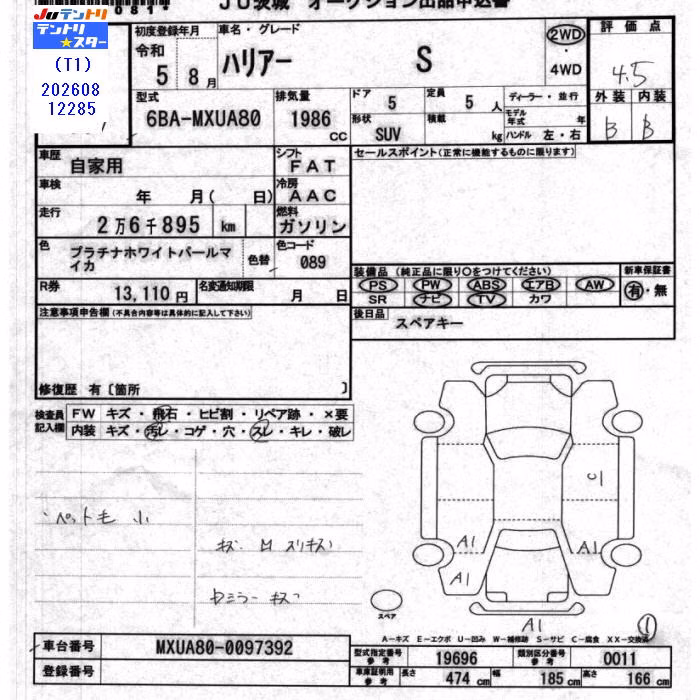 0810
JU茨城 オークション出品申込書
JUテントリ
テントリ★スター
(T1)
202608
12285
初度登録年月
令和
5 8 月
車名・グレード
ハリアー S
2WD
・
4WD
評価点
4.5
外装 内装
B B
型式
6BA-MXUA80
排気量
1986
cc
ドア
5
定員
5 人
ディーラー・並行
形状
SUV
積載
kg
モデル年式
年
ハンドル 左・右
車歴
自家用
シフト
FAT
車検
年 月( 日)
冷房
AAC
走行
2万6千895 km
燃料
ガソリン
色
プラチナホワイトパールマイカ
色替
色コード
089
R券
13,110 円
名変通知期限
月 日
セールスポイント(正常に機能するものに限ります)
装備品 (純正品に限り○をつけてください)
新車保証書
PS PW ABS エアB AW
SR ナビ TV カワ
有・無
後日品
スペアキー
注意事項申告欄(不具合内容等は具体的に記入して下さい)
修復歴 有〔箇所 〕
検査員記入欄
FW キズ・飛石・ヒビ割・リペア跡・×要
内装 キズ・汚レ・コゲ・穴・スレ・キレ・破レ
ペット毛 小
キズ M スリキズ
ルミラー キズ
A1
A1
A1
A1
スペア
1
A-キズ E-エクボ U-凹み W-補修跡 S-サビ C-腐食 XX-交換済
車台番号
MXUA80-0097392
登録番号
型式指定番号
参考
19696
類別区分番号
参考
0011
車庫証明用
参考
長さ
474 cm
幅
185 cm
高さ
166 cm